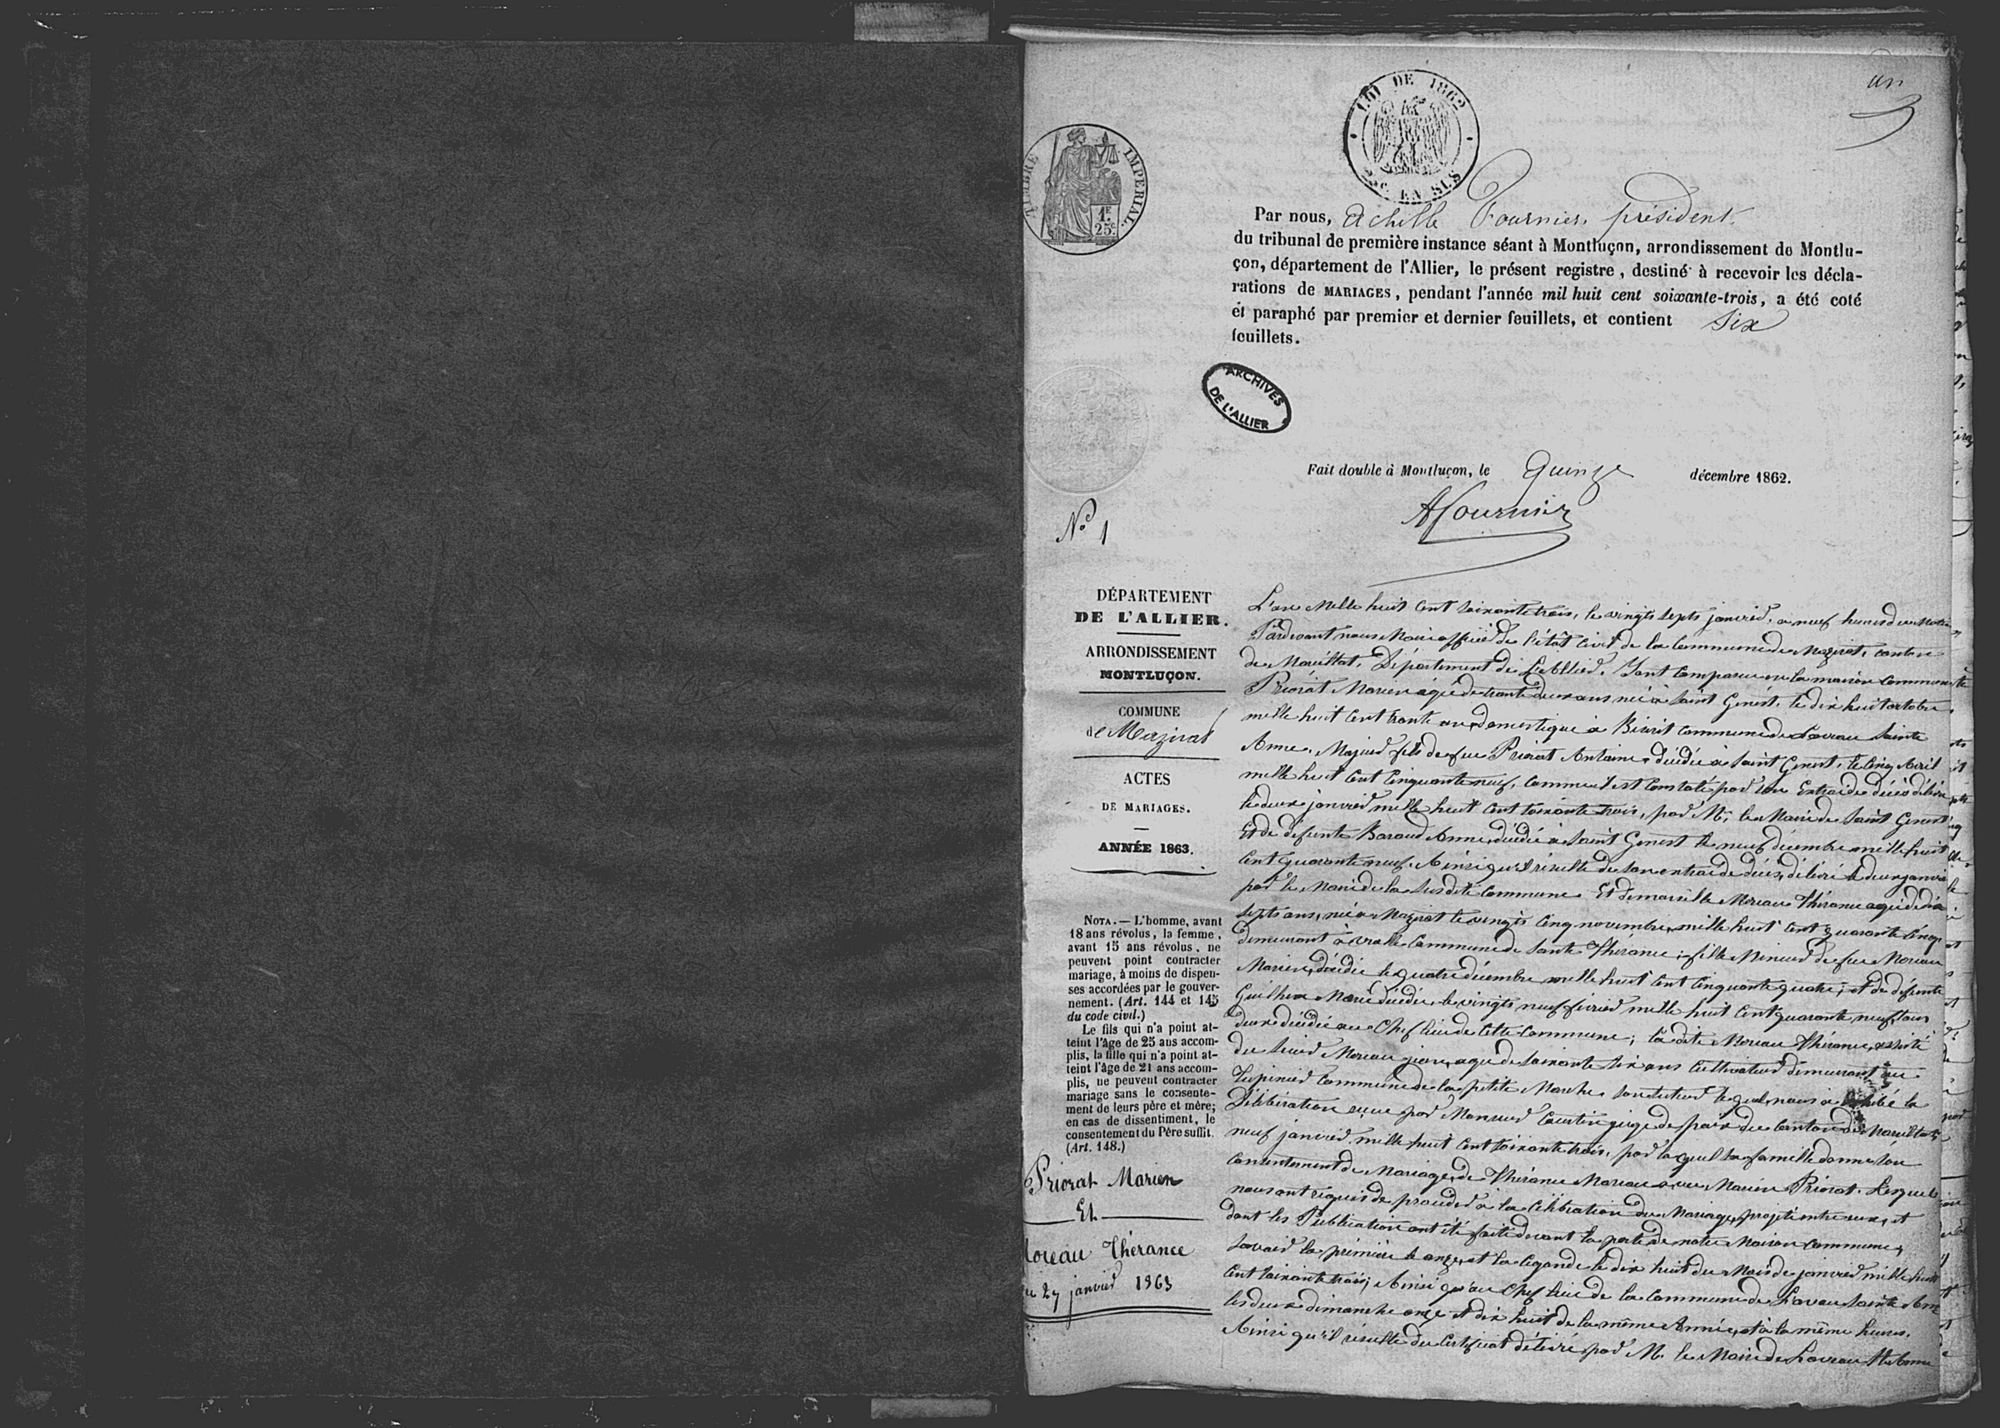 un
LOI DE 1862
25c. EN SUS
TIMBRE IMPERIAL.
1F.
25c.
Par nous, Achille Fournier, président
du tribunal de première instance séant à Montluçon, arrondissement de Montlu-
çon, département de l'Allier, le présent registre, destiné à recevoir les décla-
rations de MARIAGES, pendant l'année mil huit cent soixante-trois, a été coté
et paraphé par premier et dernier feuillets, et contient Six
feuillets.
ARCHIVES
DE L'ALLIER
Fait double à Montluçon, le Quinze décembre 1862.
AFournier
No 1
DÉPARTEMENT
DE L'ALLIER.
ARRONDISSEMENT
MONTLUÇON.
COMMUNE
de Mazirat
ACTES
DE MARIAGES.
ANNÉE 1863.
NOTA. — L'homme, avant
18 ans révolus, la femme,
avant 15 ans révolus, ne
peuvent point contracter
mariage, à moins de dispen-
ses accordées par le gouver-
nement. (Art. 144 et 145
du code civil.)
Le fils qui n'a point at-
teint l'âge de 25 ans accom-
plis, la fille qui n'a point at-
teint l'âge de 21 ans accom-
plis, ne peuvent contracter
mariage sans le consente-
ment de leurs père et mère;
en cas de dissentiment, le
consentement du Père suffit.
(Art. 148.)
Priorat Marien
Et
Moreau Thérance
27 janvier 1863
L'an Mille huit Cent soixante trois, le vingt septs janvier, a neuf heures du Matin
Pardevant nous Maire officier de l'état Civil de la Commune de Mazirat, canton
de Marcillat, Département de L'Allier. Sont Comparu en la maison Commune
Priorat Marien agé de trante deux ans né à Saint Genest, le dix huit octobre
mille huit Cent trante domestique à Commune de Lavau Sainte
Anne, Majeur fils de feu Priorat Antoine, décédé à Saint Genest, le Cinq Avril
mille huit Cent Cinquante neuf, Comme il est Constaté par un Extrait de décès délivré
le deux janvier mille huit Cent soixante trois, par Mr le Maire de Saint Genest
Et de defunte Anne, décédé à Saint Genest le neuf décembre mille huit
Cent quarante neuf, Ainsi qu'il résulte de son extrait de décès, délivré le deux janvier
par le Maire de la Susdite Commune Et demoiselle Moreau Thérance agé de dix
septs ans, né a Mazirat le vingts Cinq novembre mille huit Cent quarante Cinq
demeurant à Commune de Sainte Thérance, fille Mineur de feu Moreau
Marien, décédé le quatre décembre mille huit Cent Cinquante quatre, et de défunte
Marie décédé le vingts neuf février mille huit Cent quarante neuf, tous
deux décédé au Chef lieu de Cette Commune; la dite Moreau Thérance, assisté
du Sieur Moreau agé de Soixante Six ans Cultivateur demeurant au
Commune de la petite Marche, son tuteur le quel nous a exhibé la
Délibération reçue par Monsieur juge de paix du Canton de Marcillat,
neuf janvier mille huit Cent soixante trois, par la quel la famille donne son
Consentement de Mariage de Thérance Moreau avec Marien Priorat. Lesquels
nous ont requis de procéder à la Célébration du Mariage projeté entre eux, et
dont les Publication ont été faite devant la porte de notre Maison Commune,
Savoir la première le onze, et la segonde le dix huit du Mois de janvier mille huit
Cent soixante trois, Ainsi qu'au Chef lieu de la Commune de Lavau Sainte Anne
les deux dimanche onze et dix huit de la même Année, et à la même heure.
Ainsi qu'il résulte du Certificat délivré par M. le Maire de Lavau Ste Anne